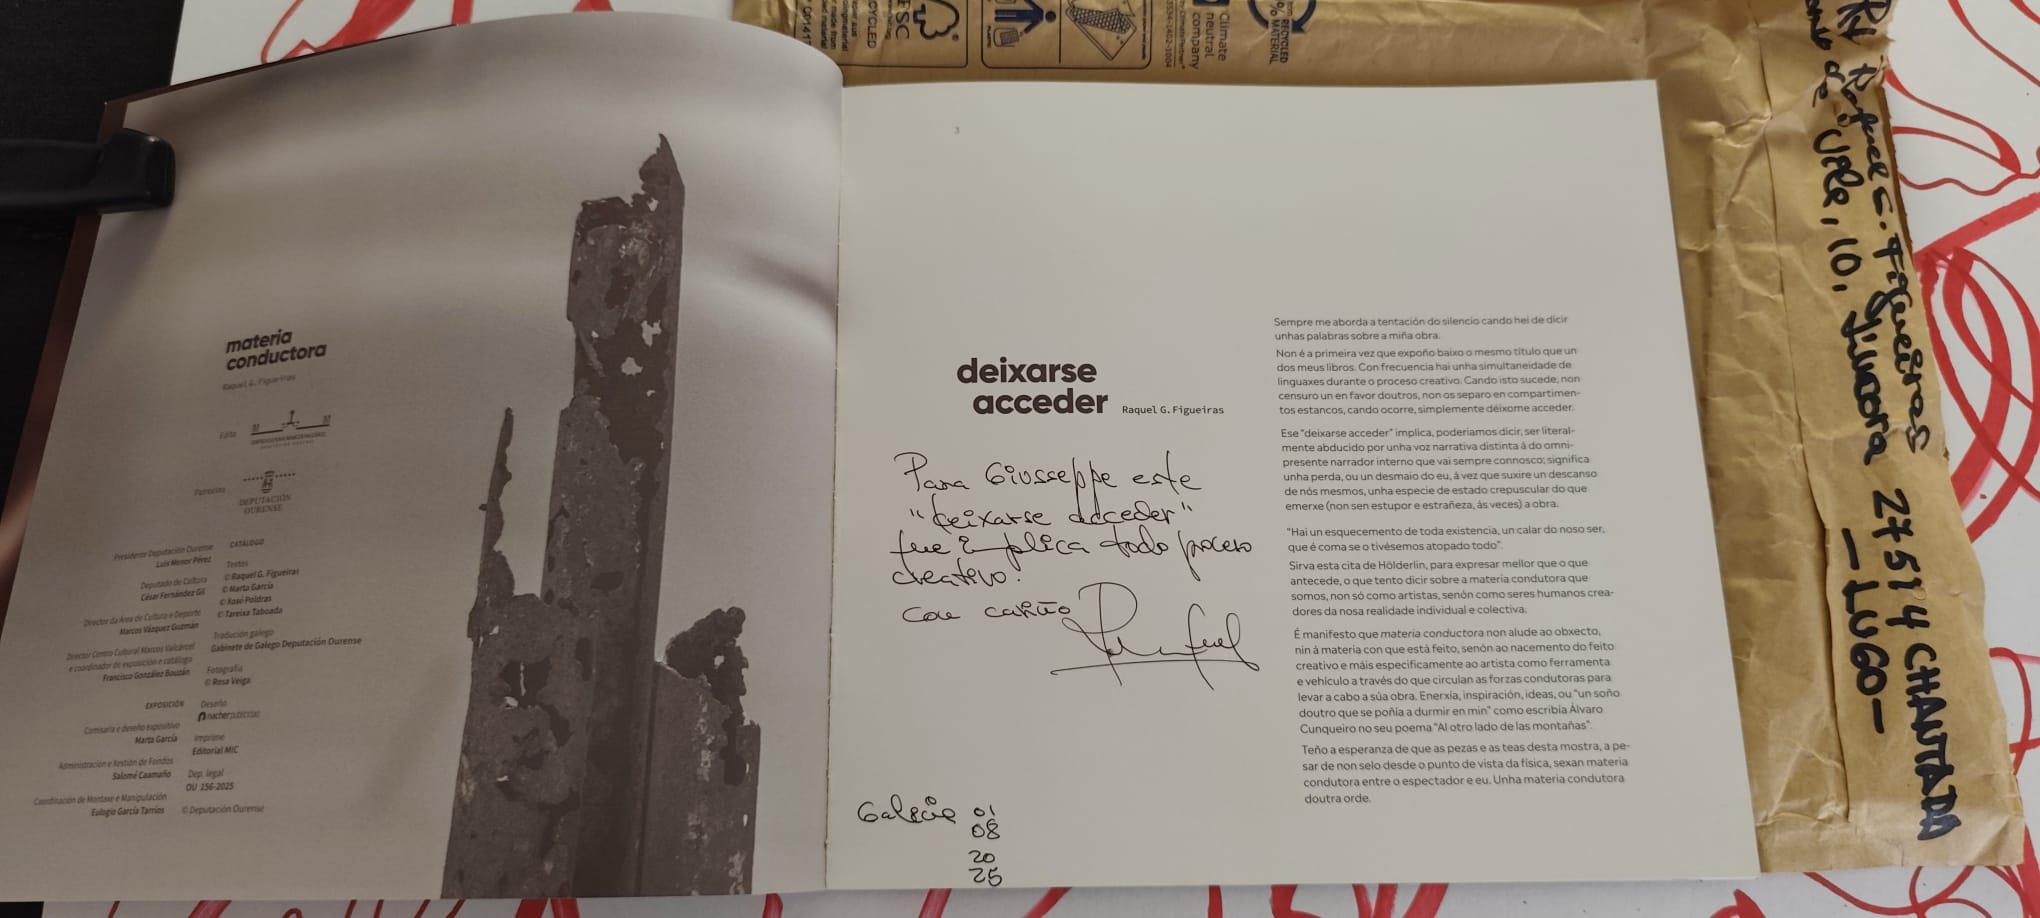 materia
conductora
Raquel G. Figueiras
Edita
Patrocina
DEPUTACIÓN
OURENSE
Presidente Deputación Ourense
Luis Menor Pérez
Deputado de Cultura
César Fernández Gil
Director da Área de Cultura e Deporte
Marcos Vázquez Guzmán
Director Centro Cultural Marcos Valcárcel
e coordinador de exposición e catálogo
Francisco González Bouzán
EXPOSICIÓN
Comisaria e deseño expositivo
Marta García
Administración e Xestión de Fondos
Salomé Caamaño
Coordinación de Montaxe e Manipulación
Eulogio García Tarrios
CATÁLOGO
Textos
© Raquel G. Figueiras
© Marta García
© Xosé Poldras
© Tareixa Taboada
Tradución galego
Gabinete de Galego Deputación Ourense
Fotografía
© Rosa Veiga
Deseño
nacher publicidad
Imprime
Editorial MIC
Dep. legal
OU 156-2025
© Deputación Ourense
3
deixarse
acceder Raquel G. Figueiras
Para Giusseppe este
"deixarse acceder"
que implica todo proceso
creativo.
Con cariño
Galicia 01
08
20
25
Sempre me aborda a tentación do silencio cando hei de dicir
unhas palabras sobre a miña obra.
Non é a primeira vez que expoño baixo o mesmo título que un
dos meus libros. Con frecuencia hai unha simultaneidade de
linguaxes durante o proceso creativo. Cando isto sucede, non
censuro un en favor doutros, non os separo en compartimen-
tos estancos, cando ocorre, simplemente déixome acceder.
Ese "deixarse acceder" implica, poderiamos dicir, ser literal-
mente abducido por unha voz narrativa distinta á do omni-
presente narrador interno que vai sempre connosco; significa
unha perda, ou un desmaio do eu, á vez que suxire un descanso
de nós mesmos, unha especie de estado crepuscular do que
emerxe (non sen estupor e estrañeza, ás veces) a obra.
"Hai un esquecemento de toda existencia, un calar do noso ser,
que é coma se o tivésemos atopado todo".
Sirva esta cita de Hölderlin, para expresar mellor que o que
antecede, o que tento dicir sobre a materia condutora que
somos, non só como artistas, senón como seres humanos crea-
dores da nosa realidade individual e colectiva.
É manifesto que materia conductora non alude ao obxecto,
nin á materia con que está feito, senón ao nacemento do feito
creativo e máis especificamente ao artista como ferramenta
e vehículo a través do que circulan as forzas condutoras para
levar a cabo a súa obra. Enerxía, inspiración, ideas, ou "un soño
doutro que se poñía a durmir en min" como escribía Álvaro
Cunqueiro no seu poema "Al otro lado de las montañas".
Teño a esperanza de que as pezas e as teas desta mostra, a pe-
sar de non selo desde o punto de vista da física, sexan materia
condutora entre o espectador e eu. Unha materia condutora
doutra orde.
FSC
Climate
neutral
company
RECYCLED
% MATERIAL
Raquel G. Figueiras
10,
27514 CHANTADA
— LUGO —